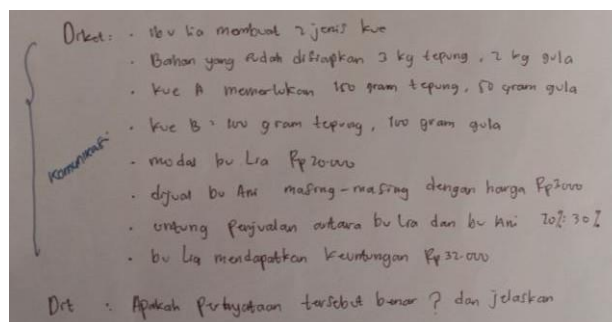 Diket : · Ibu Lia membuat 2 jenis kue
· Bahan yang sudah disiapkan 3 kg tepung, 2 kg gula
· Kue A memerlukan 150 gram tepung, 50 gram gula
· Kue B = 100 gram tepung, 100 gram gula
Komunikasi
· modal bu Lia Rp 20.000
· dijual bu Ani masing-masing dengan harga Rp3000
· untung penjualan antara bu Lia dan bu Ani 70% : 30%
· bu Lia mendapatkan keuntungan Rp 32.000
Dit : Apakah pernyataan tersebut benar ? dan jelaskan